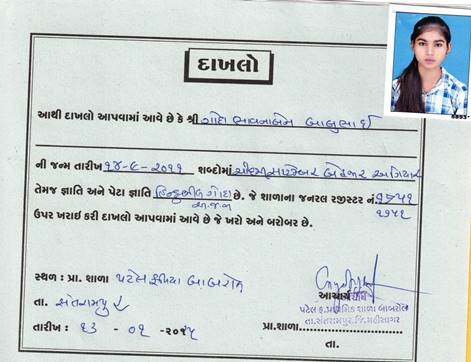 દાખલો
આથી દાખલો આપવામાં આવે છે કે શ્રી ગોદા ભાવનાબેન બાબુભાઈ
ની જન્મ તારીખ ૧૪-૯-૨૦૧૧ શબ્દોમાં ચૌદમી સપ્ટેમ્બર બે હજાર અગિયાર
તેમજ જ્ઞાતિ અને પેટા જ્ઞાતિ હિન્દુ ભીલ ગોદા છે. જે શાળાના જનરલ રજીસ્ટર નં. ૧૭૫૧
અ.જ.જ ૧૭૫૧
ઉપર ખરાઈ કરી દાખલો આપવામાં આવે છે જે ખરો અને બરોબર છે.
સ્થળ : પ્રા. શાળા પટેલ ફળીયા બાબરોલ
આચાર્ય
તા. સંતરામપુર
પટેલ ફ.પ્રાથમિક શાળા બાબરોલ
તા.સંતરામપુર,જિ.મહીસાગર
તારીખ : ૧૩ - ૦૧ - ૨૦૨૫ પ્રા.શાળા